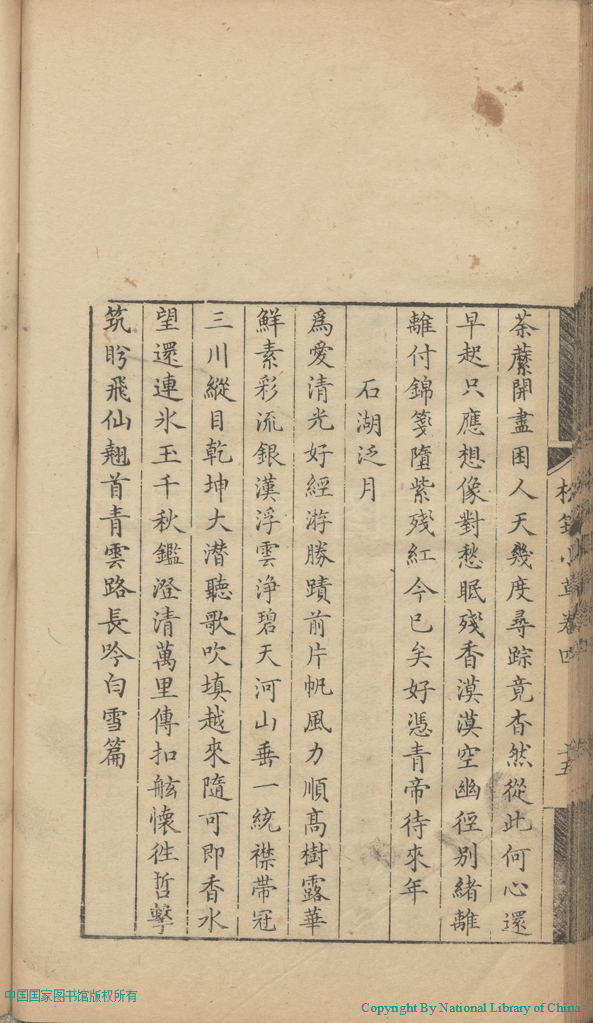 荼蘼開盡困人天幾度尋踪竟杳然從此何心還
早起只應想像對愁眠殘香漠漠空幽徑別緒離
離付錦箋墮紫殘紅今已矣好憑青帝待來年
石湖泛月
爲愛清光好經游勝蹟前片帆風力順高樹露華
鮮素彩流銀漢浮雲浄碧天河山垂一統襟帶冠
三川縱目乾坤大潛聽歌吹填越來隨可即香水
望還連氷玉千秋鑑澄清萬里傳扣舷懷徃哲擊
筑盻飛仙翹首青雲路長吟白雪篇
小草卷四
十五
中国国家图书馆版权所有
Copyright By National Library of China